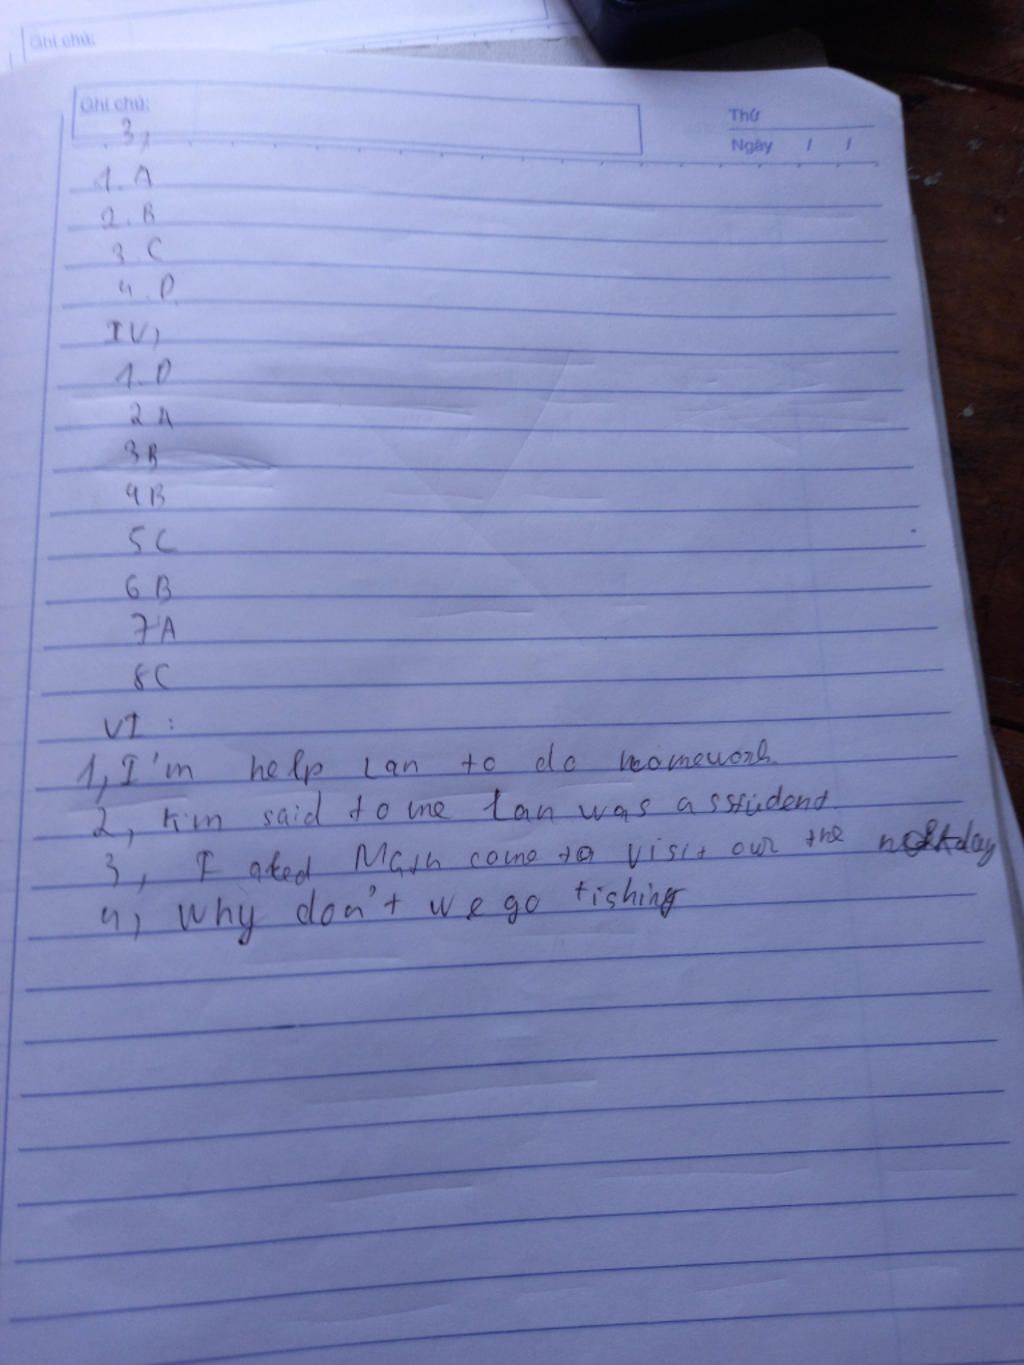 Ghi chú:
Ghi chú:
Thứ
Ngày / /
3,
1. A
2. B
3. C
4. D
IV,
1. D
2 A
3 B
4 B
5 C
6 B
7 A
8 C
VI :
1, I'm help Lan to do homework
2, Kim said to me Lan was a sstudent
3, I come to visit our the day
4, Why don't we go fishing